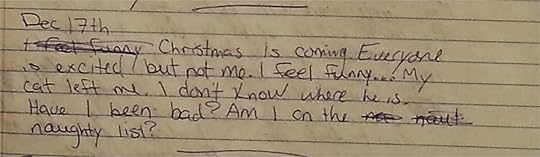 Dec 17th
I feel funny Christmas Is coming Everyone
is excited but not me. I feel funny... My
cat left me. I don't know where he is.
Have I been bad? Am I on the naut
naughty list?